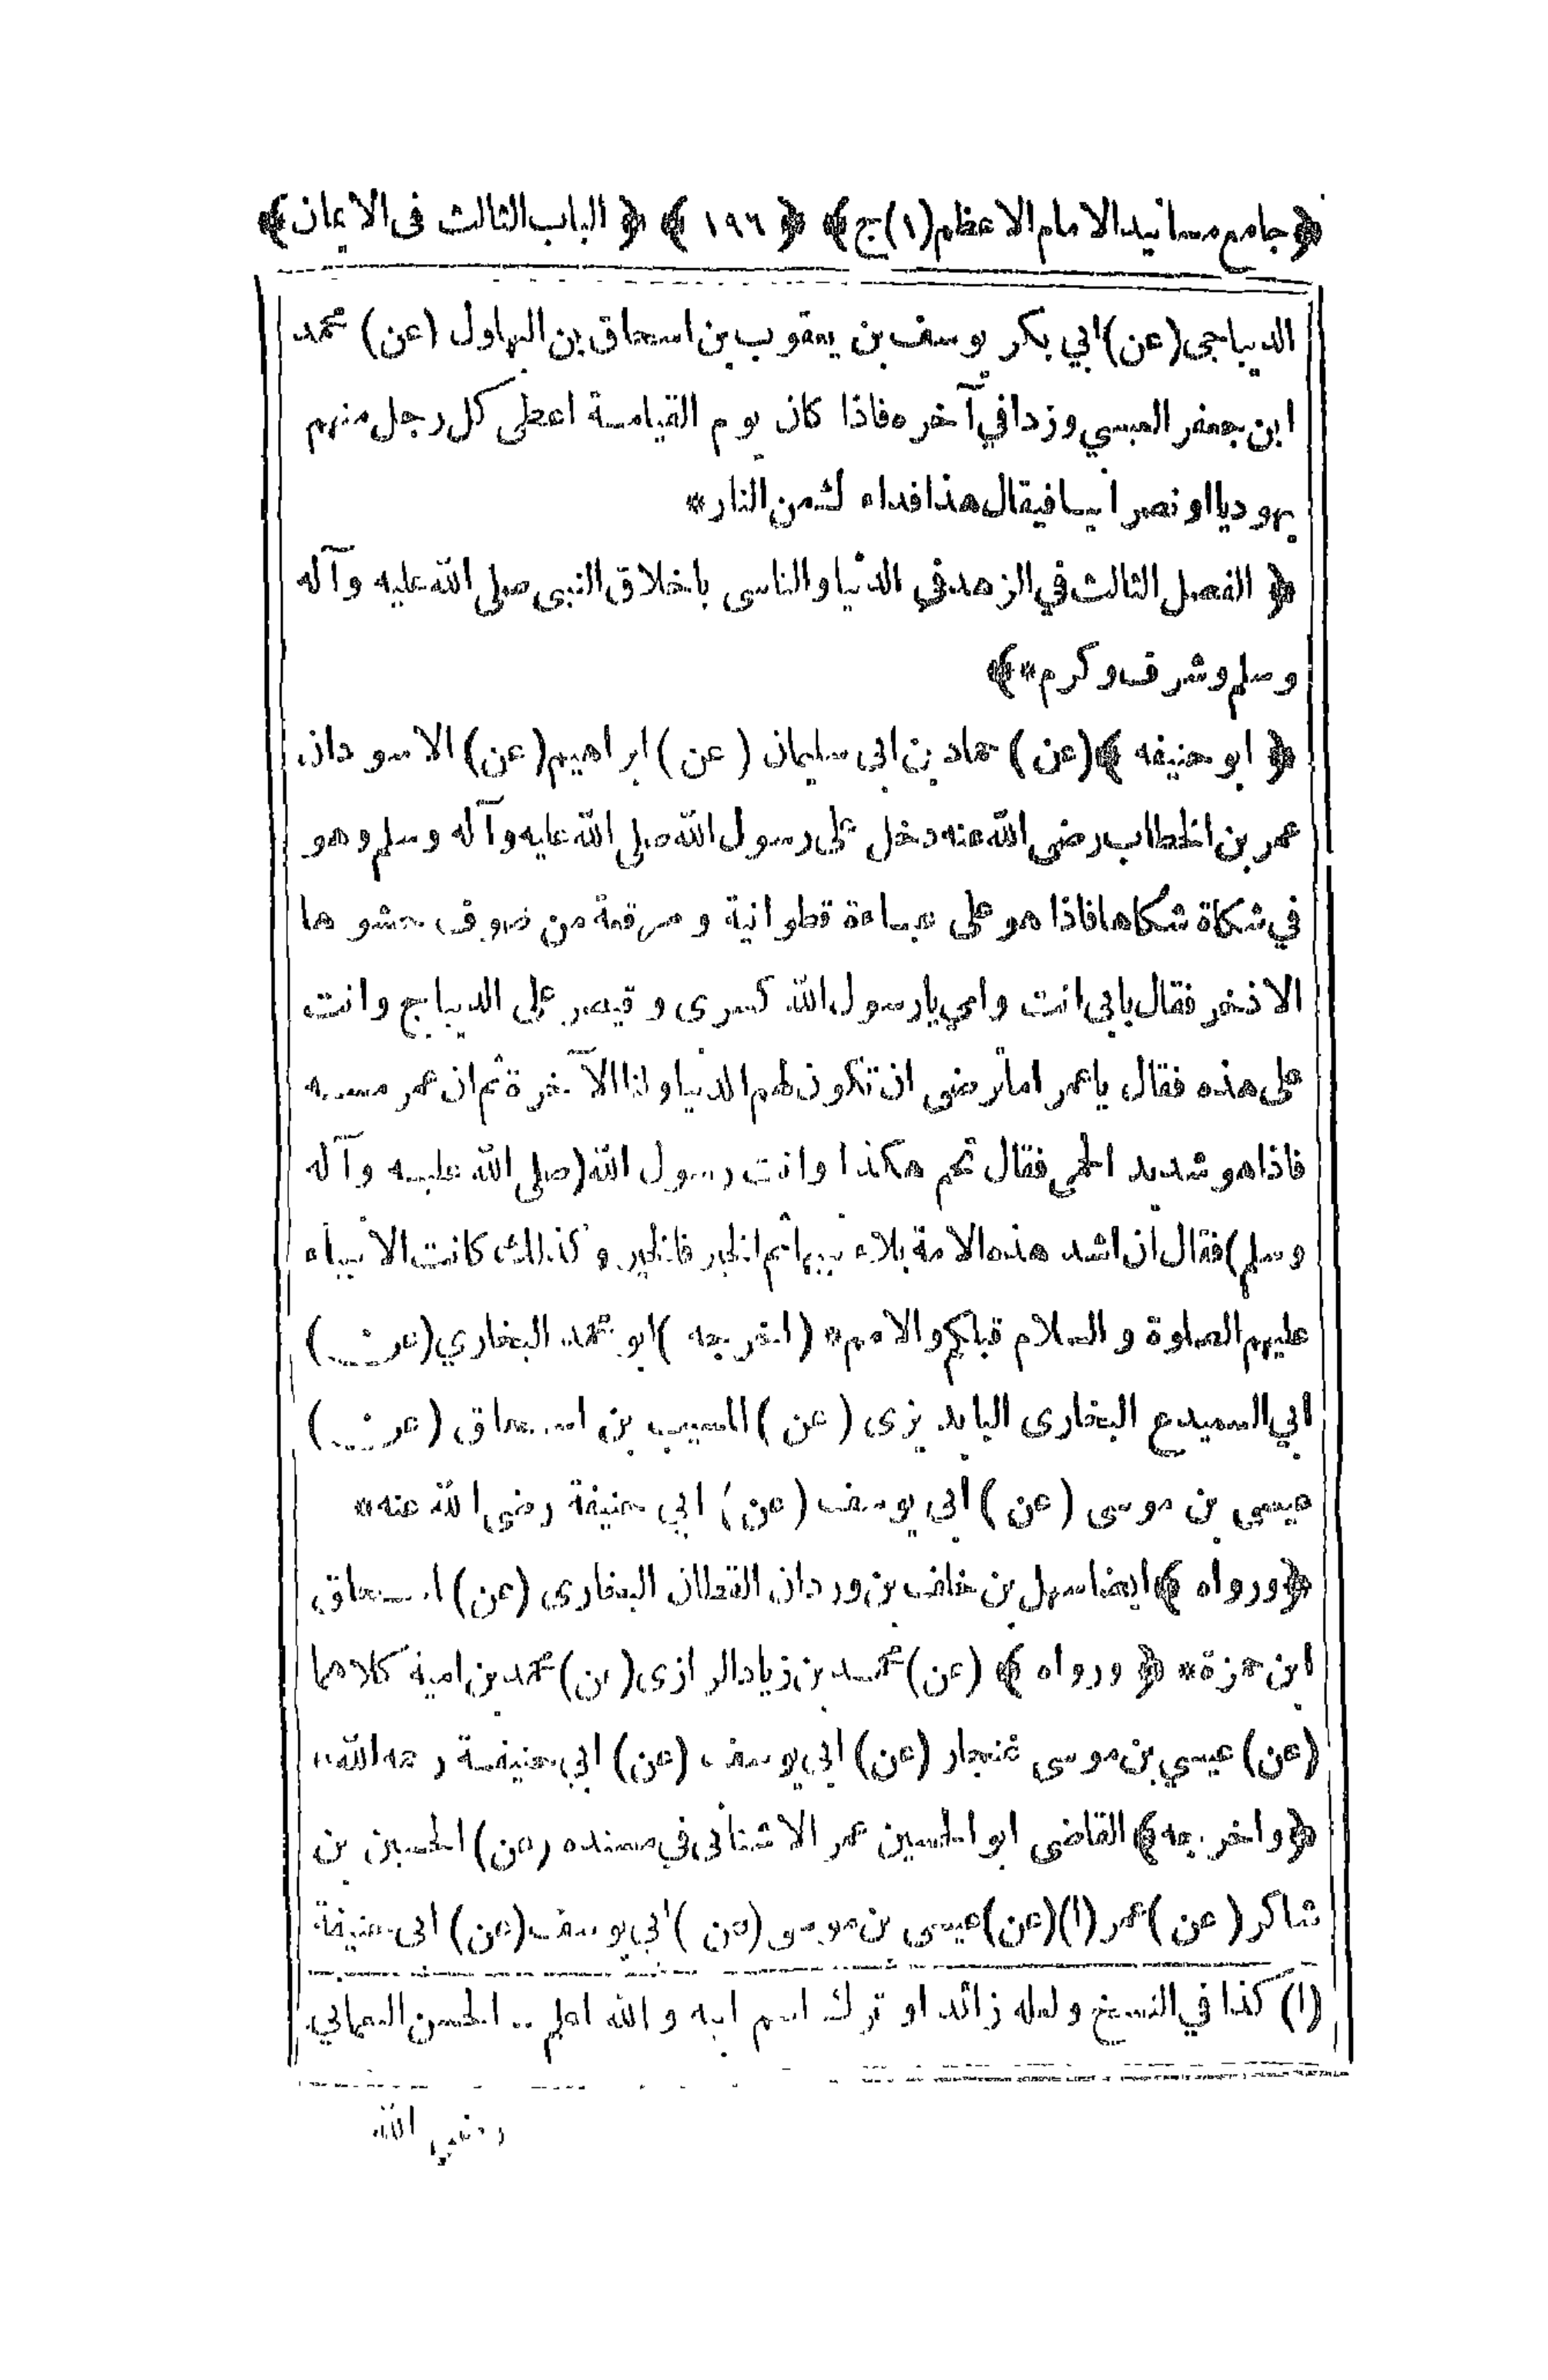 ﴿جامع مسانيد الامام الاعظم(١)ج﴾ ﴿ ١٩٦ ﴾ ﴿ الباب الثالث فى الايمان﴾
الديباجى(عن)ابي بكر يوسف بن يعقوب بن اسحاق بن البهلول (عن) محمد
ابن جعفر العبسي وزدافي آخره فاذا كان يوم القيامة اعطى كل رجل منهم
يهوديا او نصرانيا فيقال هذا فداء لك من النار*
﴿ الفصل الثالث في الزهد في الدنيا والتاسى باخلاق النبى صلى الله عليه وآله
وسلم وشرف وكرم*﴾
﴿ ابو حنيفه ﴾(عن) حماد بن ابى سليمان (عن)ابراهيم(عن) الاسود ان
عمر بن الخطاب رضى الله عنه دخل على رسول الله صلى الله عليه وآله وسلم وهو
في شكاة شكاها فاذا هو على عباءة قطوانية و مرفقة من صوف حشو ها
الاذخر فقال بابى انت وامي يا رسول الله كسرى و قيصر على الديباج وانت
على هذه فقال يا عمر اما ترضى ان تكون لهم الدنيا ولنا الآخرة ثم ان عمر مسه
فاذا هو شديد الحمى فقال تحم هكذا وانت رسول الله(صلى الله عليه وآله
وسلم)فقال ان اشد هذه الامة بلاء نبيها ثم الخير فالخير و كذلك كانت الانبياء
عليهم الصلوة و السلام قبلكم والامم* (اخرجه )ابو محمد البخاري(عن)
ابي السميدع البخارى البابد يزى (عن) المسيب بن اسحاق (عن)
عيسى بن موسى (عن) ابى يوسف (عن) ابي حنيفة رضى الله عنه*
﴿ورواه ﴾ ايضا سهل بن خلف بن وردان القطان البخارى (عن) اسحاق
ابن حمزة* ﴿ ورواه ﴾ (عن) محمد بن زياد الرازى(عن) محمد بن امية كلاهما
(عن) عيسي بن موسى غنجار (عن) ابي يوسف (عن) ابي حنيفة رحمه الله*
﴿واخرجه﴾ القاضى ابو الحسين عمر الاشنانى في مسنده (عن) الحسين بن
شاكر(عن)عمر(١)(عن)عيسى بن موسى (عن)ابي يوسف(عن) ابى حنيفة
(١) كذا في النسخ ولعله زائد او ترك اسم ابيه و الله اعلم .. الحسن النعماني
رضي الله